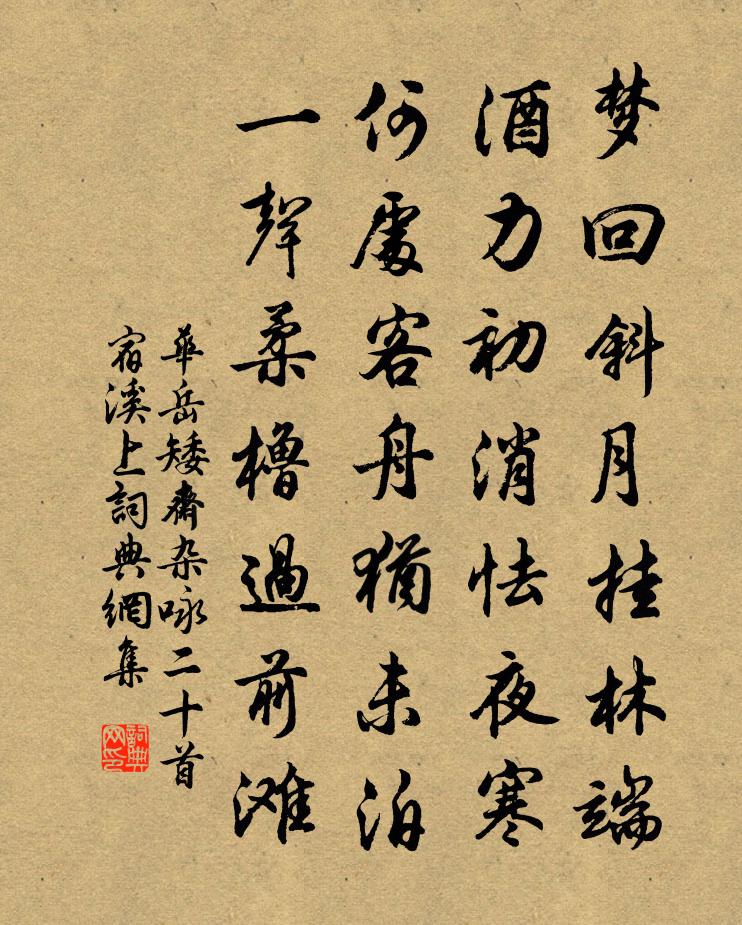 梦回斜月挂林端
酒力初消怯夜寒
何處客舟猶未泊
一聲柔櫓過前滩
華岳矮齋杂咏二十首
宿溪上詞典網集
詞典网印